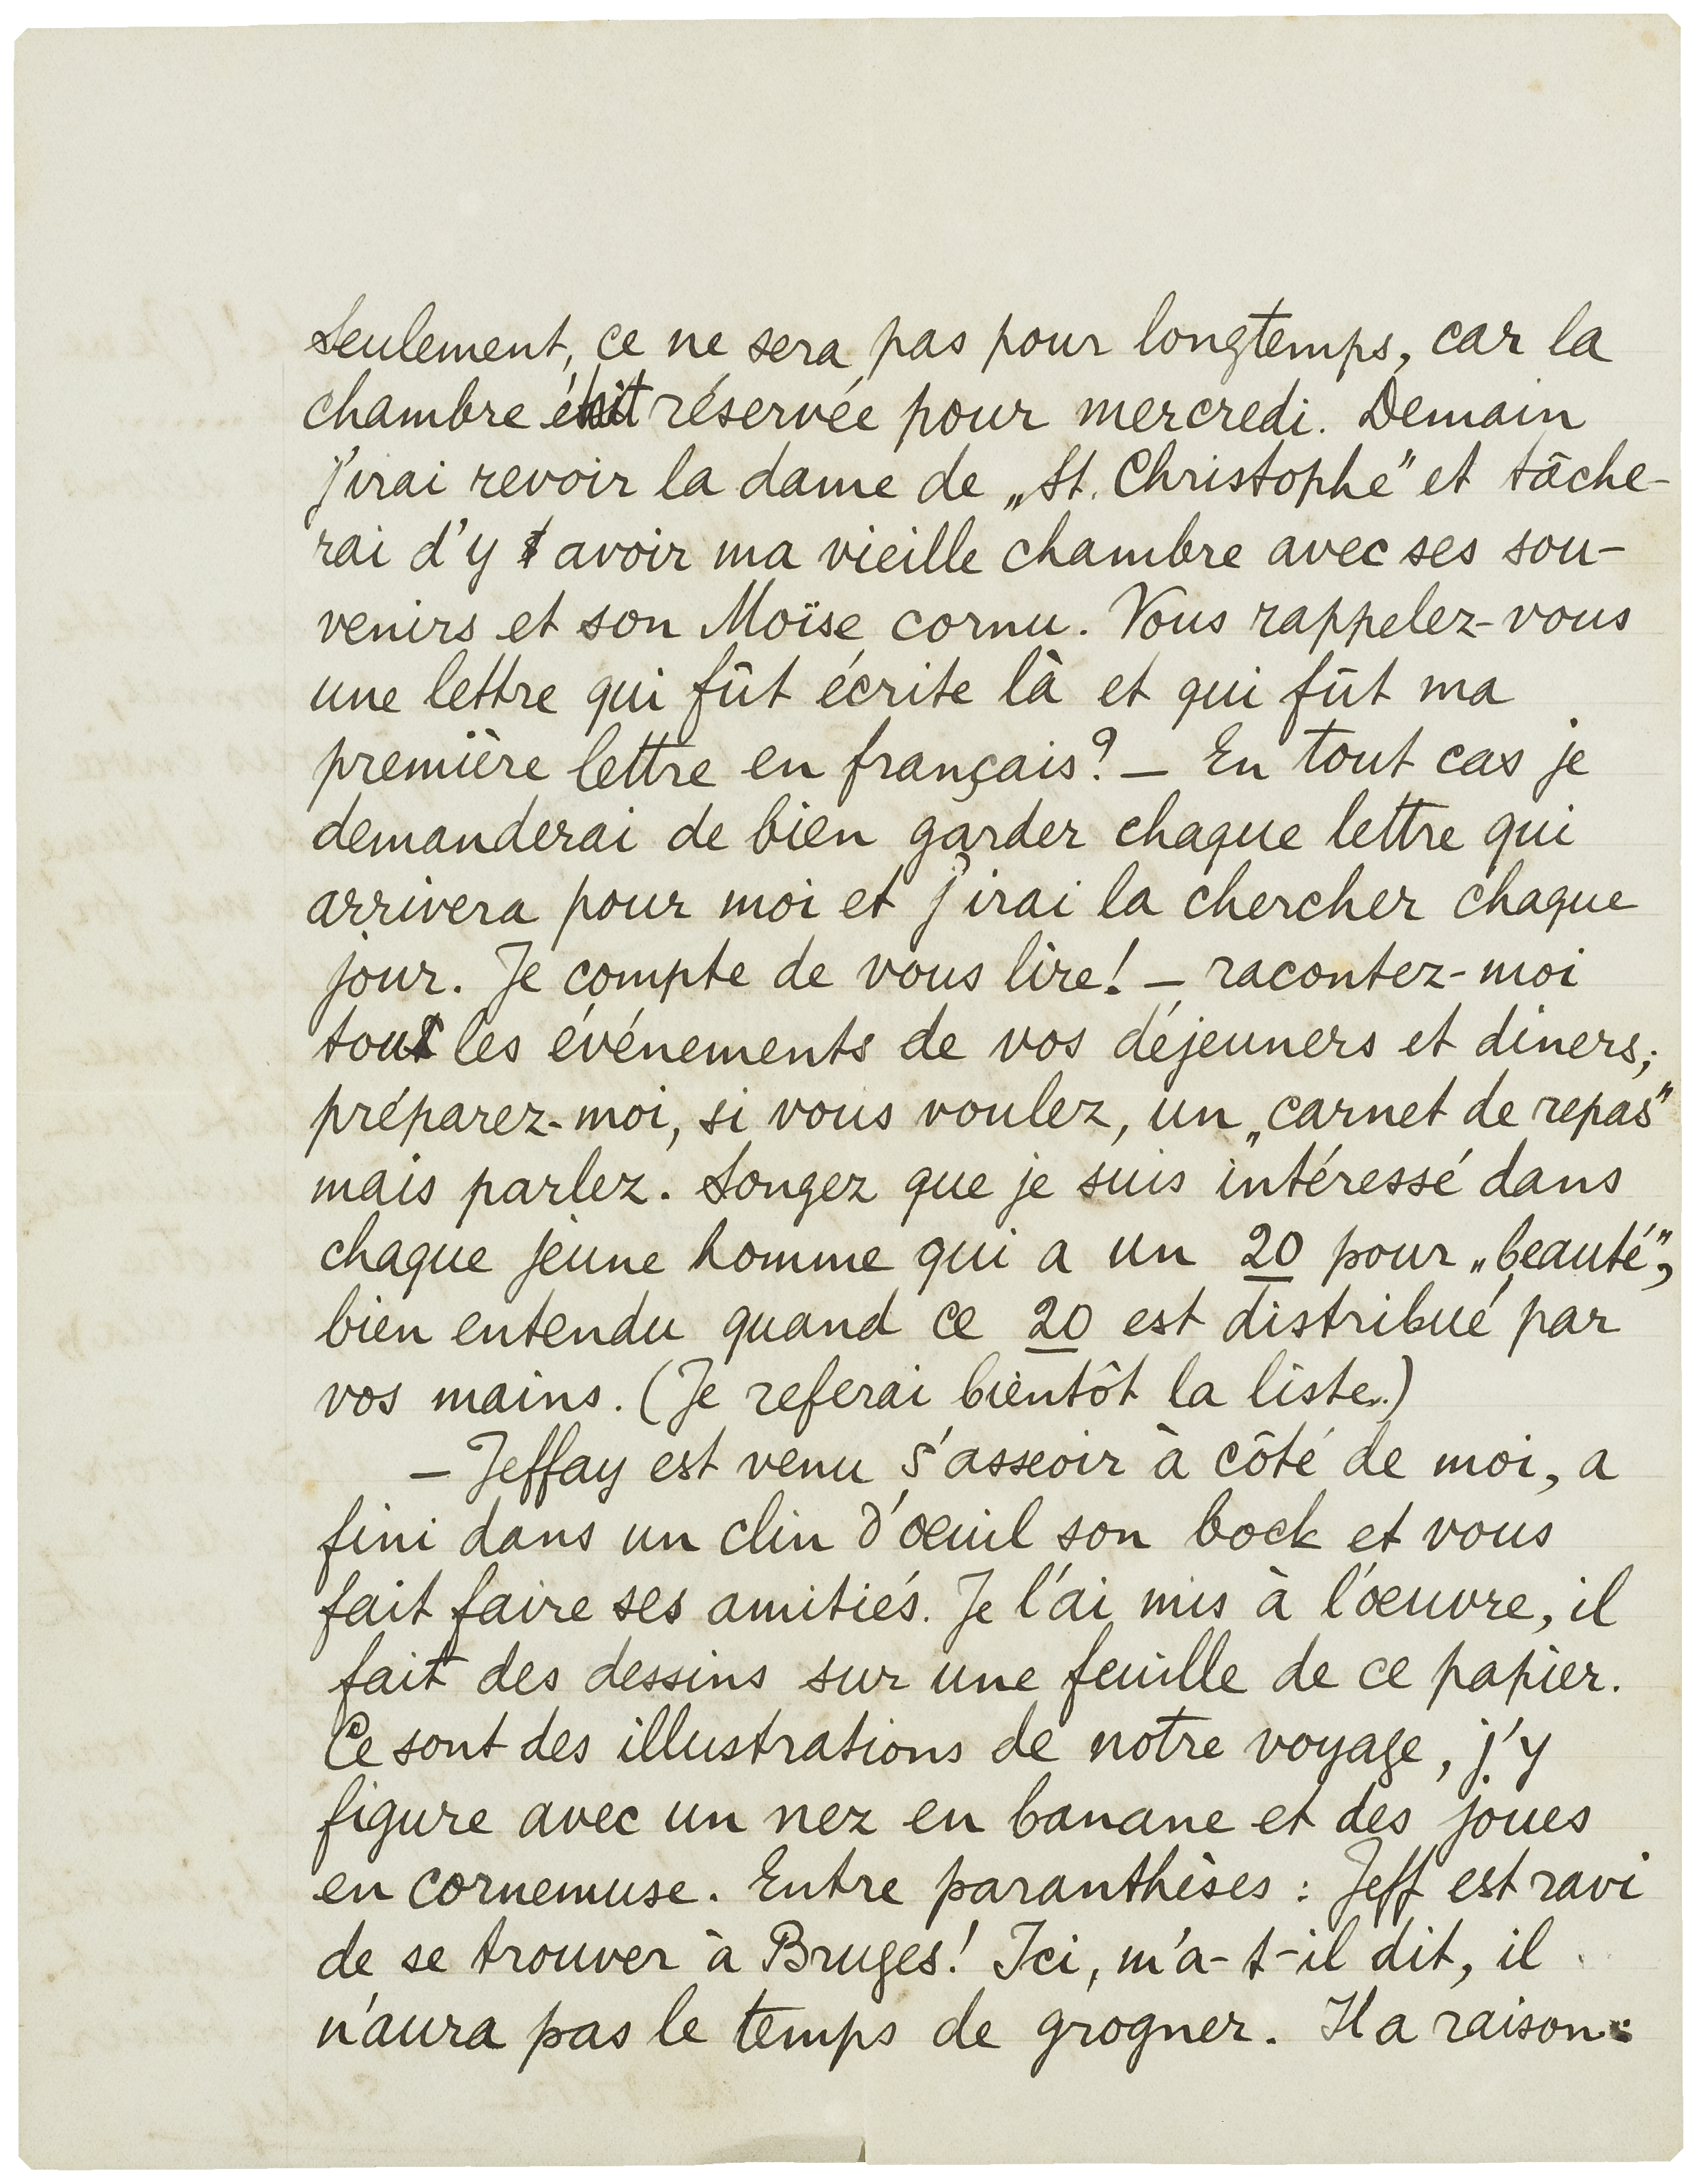 Seulement, ce ne sera pas pour longtemps, car la
chambre était réservée pour mercredi. Demain
j'irai revoir la dame de „St. Christophe" et tâche-
rai d'y avoir ma vieille chambre avec ses sou-
venirs et son Moïse cornu. Vous rappelez-vous
une lettre qui fût écrite là et qui fût ma
première lettre en français? — En tout cas je
demanderai de bien garder chaque lettre qui
arrivera pour moi et j'irai la chercher chaque
jour. Je compte de vous lire! — racontez-moi
tout les événements de vos déjeuners et diners;
préparez-moi, si vous voulez, un „carnet de repas"
mais parlez. Songez que je suis intéressé dans
chaque jeune homme qui a un 20 pour „beauté",
bien entendu quand ce 20 est distribué par
vos mains. (Je referai bientôt la liste.)
— Jeffay est venu s'asseoir à côté de moi, a
fini dans un clin d'œuil son bock et vous
fait faire ses amitiés. Je l'ai mis à l'œuvre, il
fait des dessins sur une feuille de ce papier.
Ce sont des illustrations de notre voyage, j'y
figure avec un nez en banane et des joues
en cornemuse. Entre paranthèses : Jeff est ravi
de se trouver à Bruges! Ici, m'a-t-il dit, il
n'aura pas le temps de grogner. Il a raison: